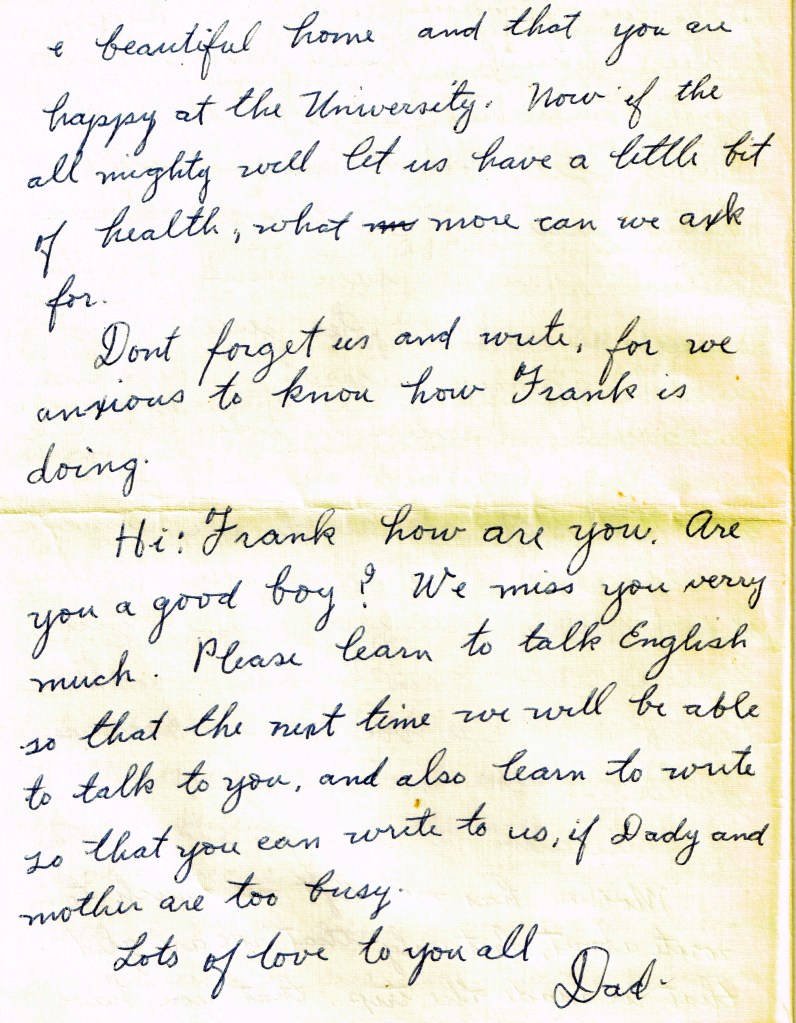 e beautiful home and that you are
happy at the University. Now if the
all mighty will let us have a little bit
of health, what more can we ask
for.
Dont forget us and write, for we
anxious to know how Frank is
doing.
Hi: Frank how are you. Are
you a good boy? We miss you verry
much. Please learn to talk English
so that the next time we will be able
to talk to you, and also learn to write
so that you can write to us, if Dady and
mother are too busy.
Lots of love to you all
Dad.